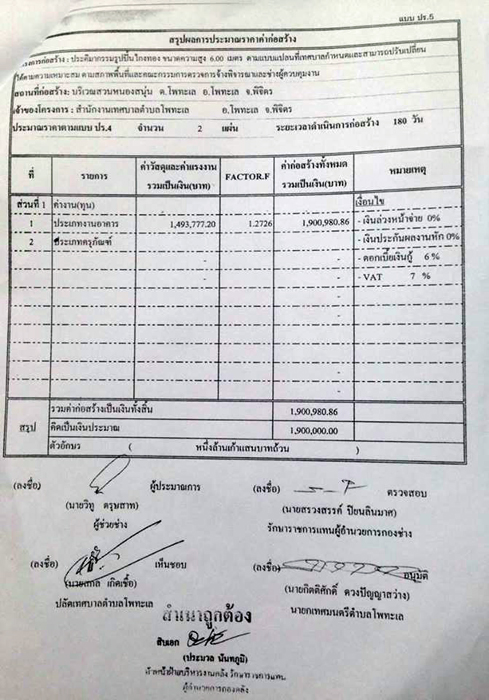 แบบ ปร.5
สรุปผลการประมาณราคาค่าก่อสร้าง
โครงการก่อสร้าง : ประติมากรรมรูปปั้นไกรทอง ขนาดความสูง 6.00 เมตร ตามแบบแปลนที่เทศบาลกำหนดและสามารถปรับเปลี่ยน
ได้ตามความเหมาะสม ตามสภาพพื้นที่และคณะกรรมการตรวจการจ้างพิจารณาและช่างผู้ควบคุมงาน
สถานที่ก่อสร้าง: บริเวณสวนหนองสนุ่น ต.โพทะเล อ.โพทะเล จ.พิจิตร
เจ้าของโครงการ : สำนักงานเทศบาลตำบลโพทะเล อ.โพทะเล จ.พิจิตร
ประมาณราคาตามแบบ ปร.4 จำนวน 2 แผ่น ระยะเวลาดำเนินการก่อสร้าง 180 วัน
ที่ รายการ ค่าวัสดุและค่าแรงงาน รวมเป็นเงิน(บาท) FACTOR.F ค่าก่อสร้างทั้งหมด รวมเป็นเงิน(บาท) หมายเหตุ
ส่วนที่ 1 ค่างาน(ทุน) เงื่อนไข
1 ประเภทงานอาคาร 1,493,777.20 1.2726 1,900,980.86 - เงินล่วงหน้าจ่าย 0%
2 ประเภทครุภัณฑ์ - - - เงินประกันผลงานหัก 0%
- - - ดอกเบี้ยเงินกู้ 6 %
- - - VAT 7 %
รวมค่าก่อสร้างเป็นเงินทั้งสิ้น 1,900,980.86
สรุป คิดเป็นเงินประมาณ 1,900,000.00
ตัวอักษร ( หนึ่งล้านเก้าแสนบาทถ้วน )
(ลงชื่อ) ผู้ประมาณการ (ลงชื่อ) ตรวจสอบ
(นายวิทู ดรุษสาท) (นายสรวงสรรค์ ปิยนลินมาศ)
ผู้ช่วยช่าง รักษาราชการแทนผู้อำนวยการกองช่าง
(ลงชื่อ) เห็นชอบ (ลงชื่อ) อนุมัติ
(นายสกล เกิดเชื้อ) (นายกิตติศักดิ์ ดวงปัญญาสว่าง)
ปลัดเทศบาลตำบลโพทะเล นายกเทศมนตรีตำบลโพทะเล
สำเนาถูกต้อง
สิบเอก
(ประมวล นันทภูมิ)
หัวหน้าฝ่ายบริหารงานคลัง รักษาราชการแทน
ผู้อำนวยการกองคลัง